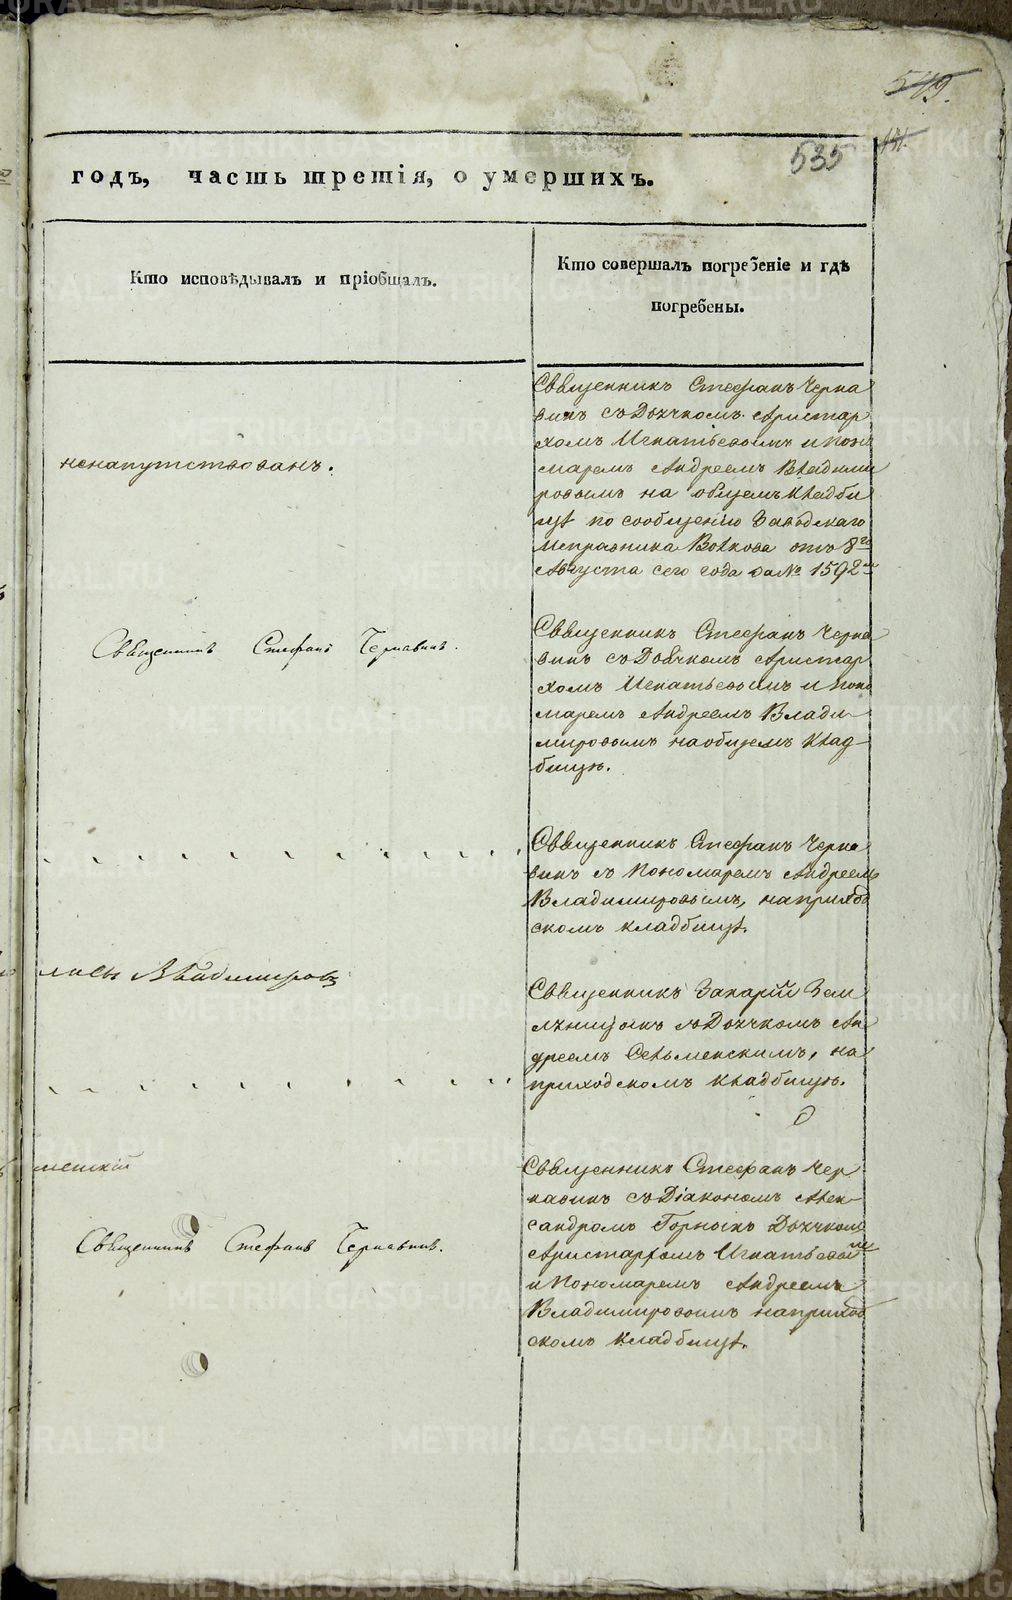 549.
535
годъ, часть третія, о умершихъ.
Кто исповѣдывалъ и пріобщалъ.
Кто совершалъ погребеніе и гдѣ
погребены.
ненапутствованъ.
Священникъ Стефанъ Черна
винъ съ Дьячкомъ Аристар
хомъ Игнатьевымъ и поно
маремъ Андреемъ Владими
ровымъ на общемъ кладби
щѣ по сообщенію Заводскаго
Исправника Волкова отъ 8го
Августа сего года за № 1592мъ
Священникъ Стефанъ Чернавинъ.
Священникъ Стефанъ Черна
винъ съ Дьячкомъ Аристар
хомъ Игнатьевымъ и поно
маремъ Андреемъ Влади-
мировымъ на общемъ клад-
бищѣ.
Священникъ Стефанъ Черна
винъ съ Пономаремъ Андреемъ
Владимировымъ, на приход
скомъ кладбищѣ.
Владимировъ
Священникъ Захарій Зем
ляницынъ съ Дьячкомъ Ан
дреемъ Сельменскимъ, на
приходскомъ кладбищѣ.
менскій
Священникъ Стефанъ Чер
навинъ съ Діакономъ Алек-
сандромъ Горныхъ Дьячкомъ
Аристархомъ Игнатьевымъ
и Пономаремъ Андреемъ
Владимировымъ на приход
скомъ кладбищѣ.
Священникъ Стефанъ Чернавинъ.
METRIKI.GASO-URAL.RU